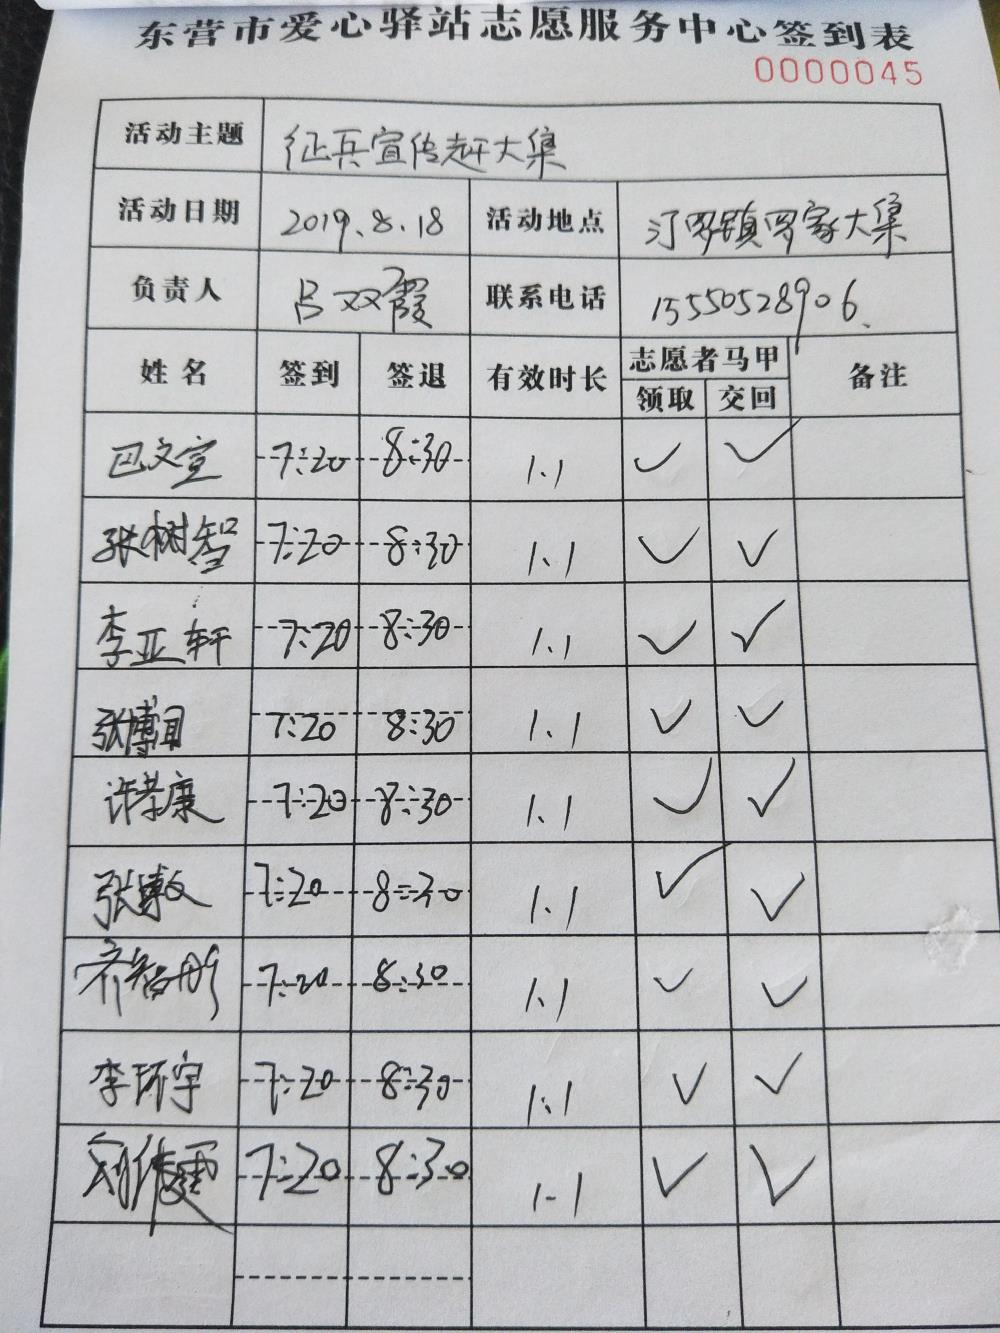 东营市爱心驿站志愿服务中心签到表
0000045
活动主题 征兵宣传赶大集
活动日期 2019.8.18 活动地点 汀罗镇罗家大集
负责人 吕双霞 联系电话 15550528906.
姓名 签到 签退 有效时长 志愿者马甲 备注
领取 交回
巴文宣 7:20 8:30 1.1 ✓ ✓
张树智 7:20 8:30 1.1 ✓ ✓
李亚轩 7:20 8:30 1.1 ✓ ✓
张博 7:20 8:30 1.1 ✓ ✓
许荣康 7:20 8:30 1.1 ✓ ✓
张 7:20 8:30 1.1 ✓ ✓
齐智彤 7:20 8:30 1.1 ✓ ✓
李环宇 7:20 8:30 1.1 ✓ ✓
7:20 8:30 1.1 ✓ ✓